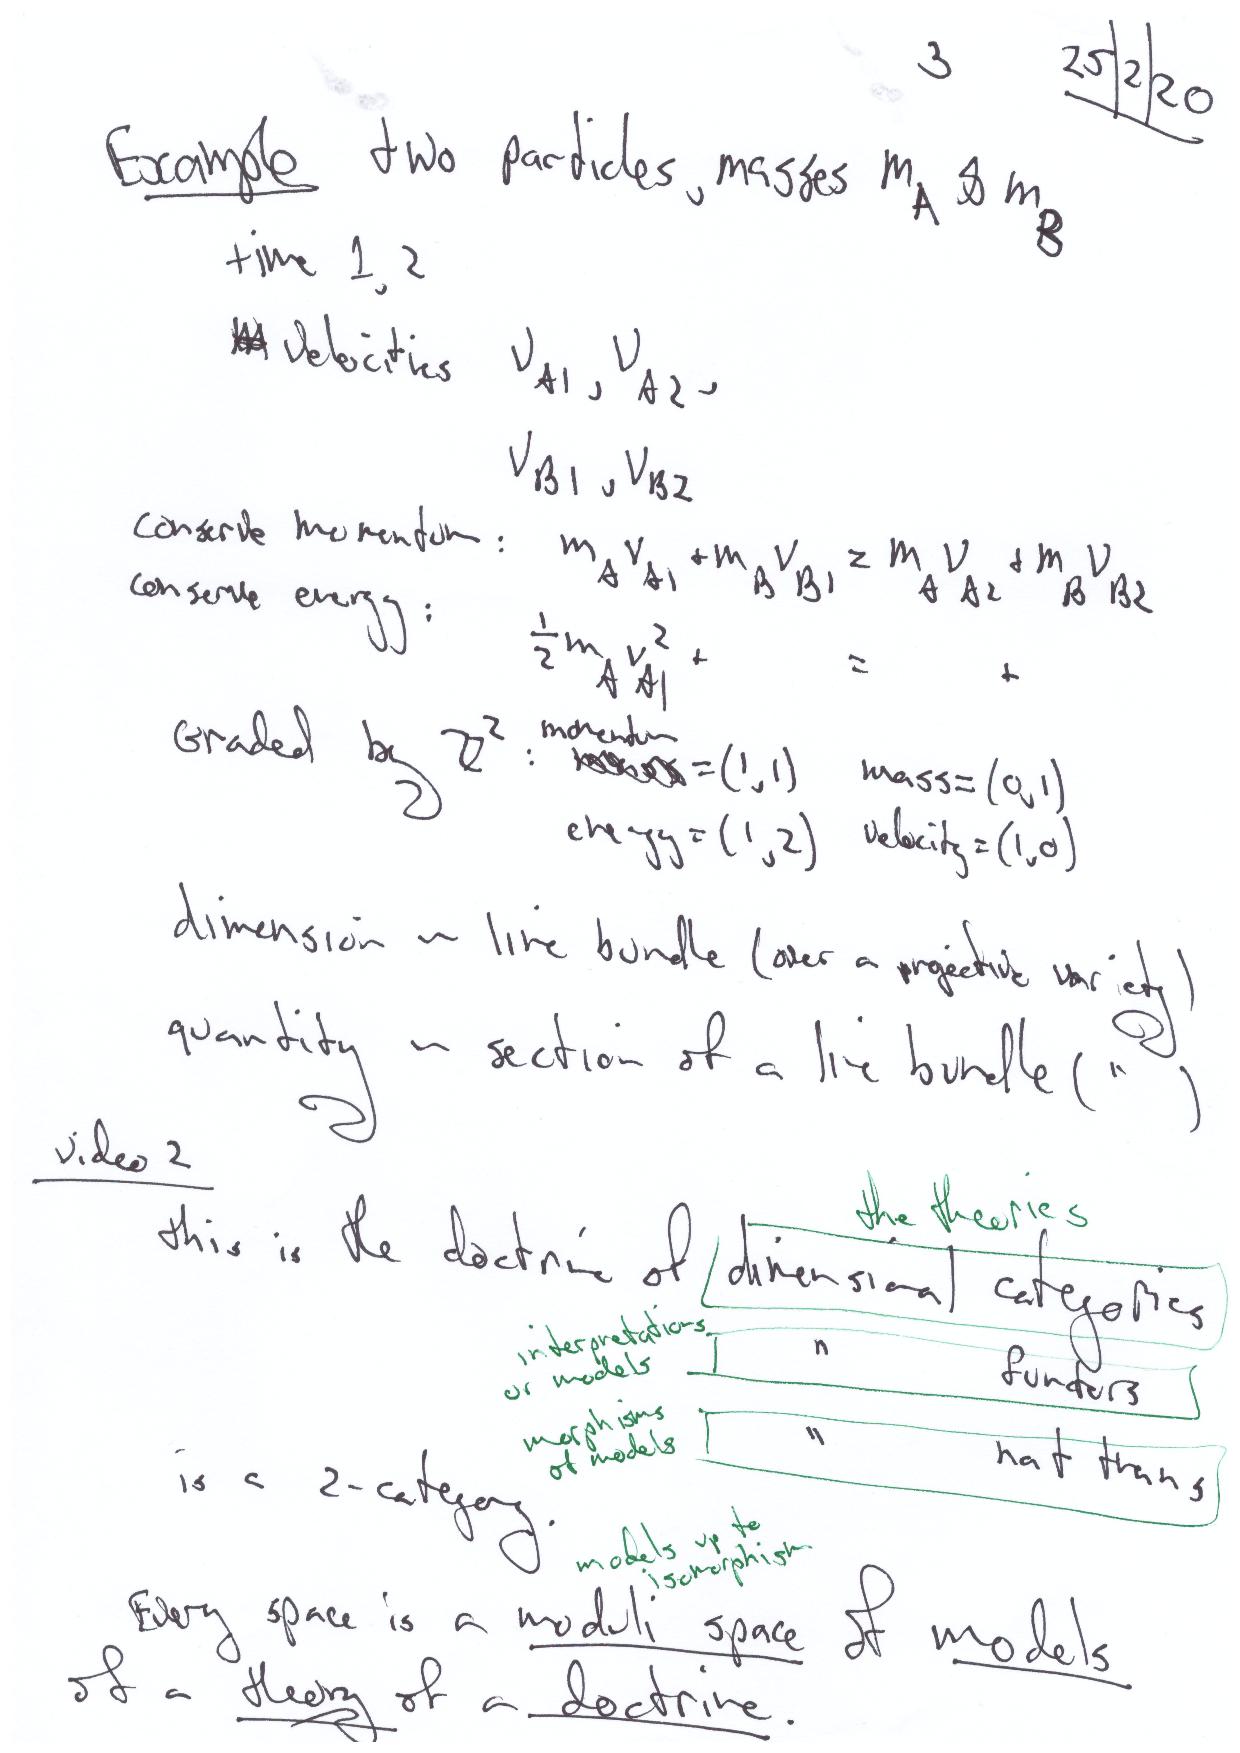 3 25/2/20
Example two particles, masses m_A & m_B
time 1, 2
velocities V_A1, V_A2,
V_B1, V_B2
conserve momentum: m_A V_A1 + m_B V_B1 = m_A V_A2 + m_B V_B2
conserve energy: ½ m_A V_A1² + = +
Graded by ℤ²: momentum = (1,1) mass = (0,1)
energy = (1,2) velocity = (1,0)
dimension ~ line bundle (over a projective variety)
quantity ~ section of a line bundle ( " )
video 2
the theories
this is the doctrine of dimensional categories
interpretations or models " functors
morphisms of models " nat trans
is a 2-category.
models up to isomorphism
Every space is a moduli space of models
of a theory of a doctrine.